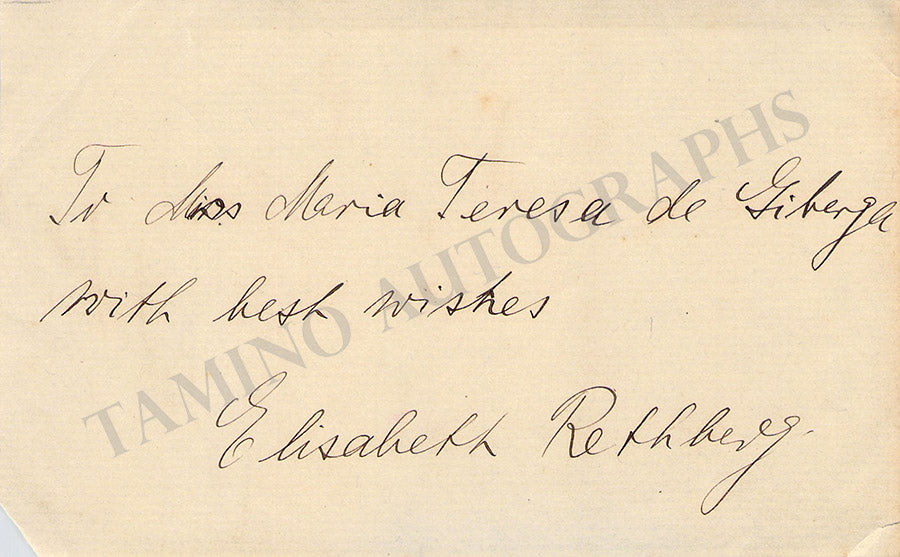 To Miss Maria Teresa de Giberga
with best wishes
Elisabeth Rethberg.
TAMINO AUTOGRAPHS